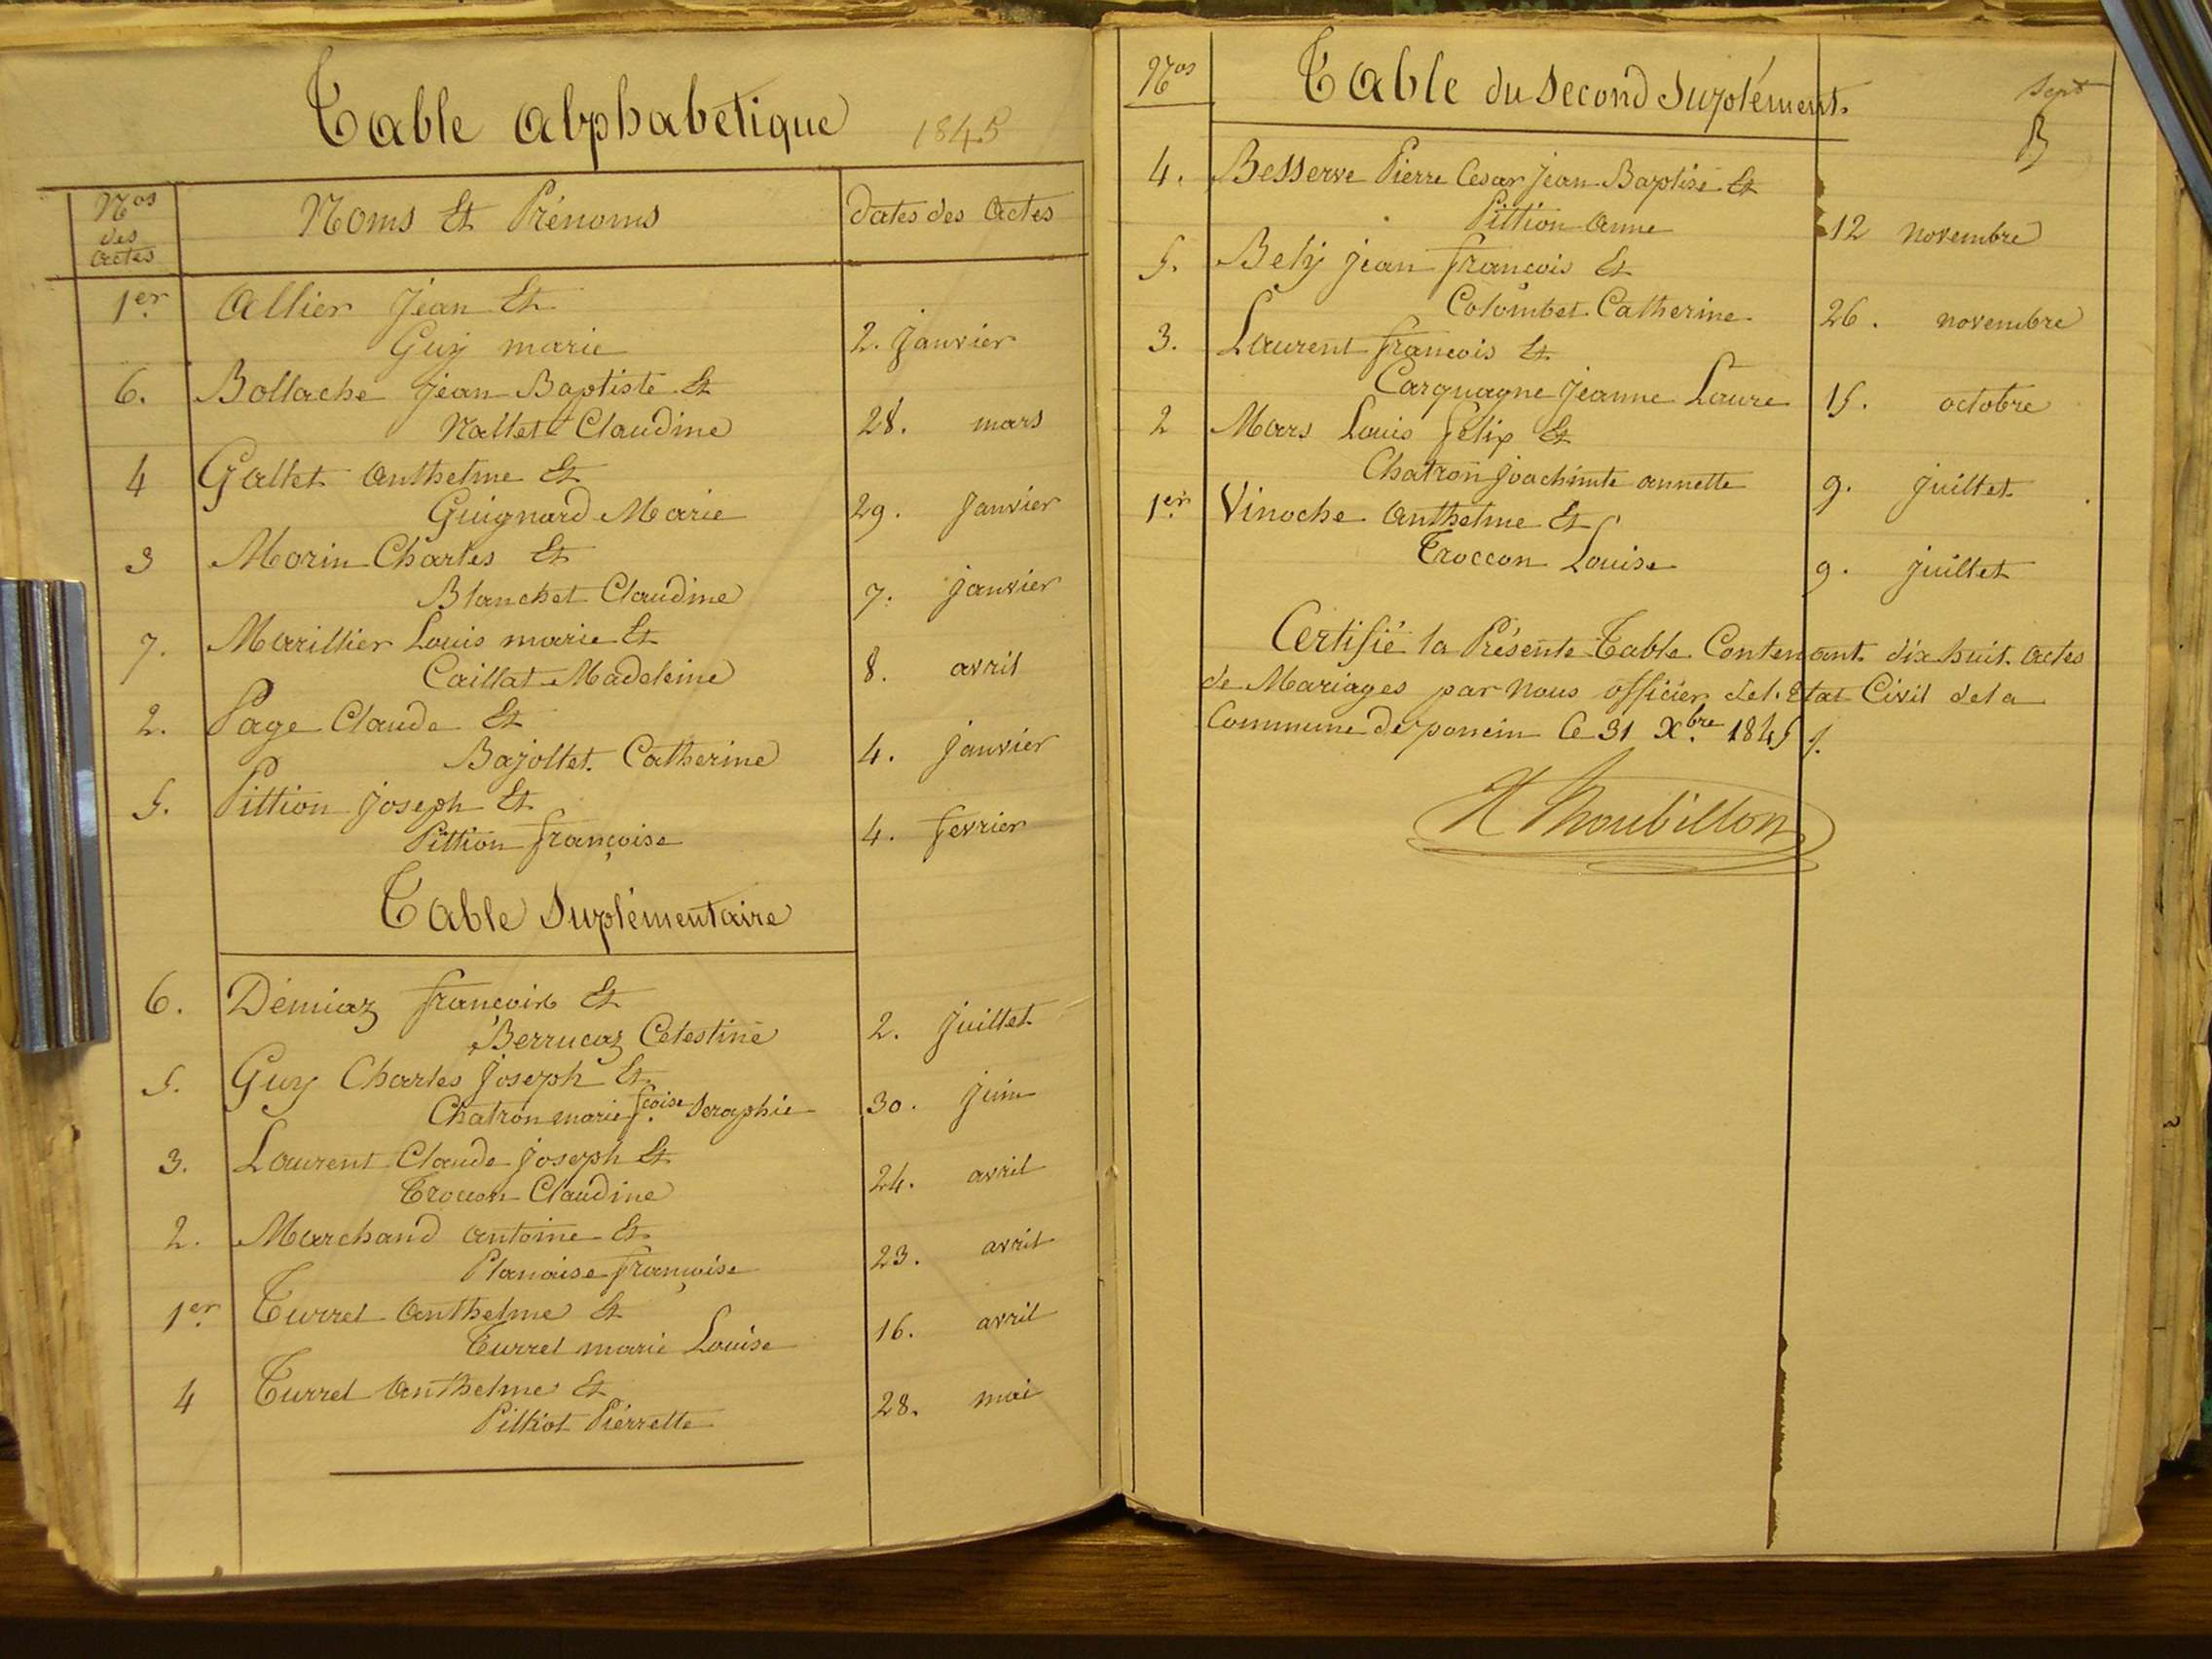 Table alphabétique 1845
Nos des actes
Noms Et Prénoms
dates des actes
1er Allier Jean Et
Guy marie 2. janvier
6. Bollache Jean Baptiste Et
Nallet Claudine 28. mars
4 Gallet anthelme Et
Guignard Marie 29. janvier
3 Morin Charles Et
Blanchet Claudine 7. janvier
7. Marillier Louis marie Et
Caillat Madeleine 8. avril
2. Page Claude Et
Bajollet Catherine 4. janvier
5. Pittion joseph Et
Pittion françoise 4. fevrier
Table Suplémentaire
6. Démiaz françois Et
Berrucaz Celestine 2. juillet
5. Guy Charles joseph Et
Chatron marie fcoise Seraphie 30. juin
3. Laurent Claude joseph Et
Troccon Claudine 24. avril
2. Marchand antoine Et
Planaise françoise 23. avril
1er Turrel anthelme Et
Turrel marie Louise 16. avril
4 Turrel anthelme Et
Pierrette 28. mai
Nos Table du Second Suplément.
Sept
4. Besserve Pierre Cesar Jean Baptise Et
Pittion anne 12 novembre
5. Bely jean françois Et
Colombet Catherine 26. novembre
3. Laurent françois Et
Carquagne jeanne Laure 15. octobre
2 Mars Louis felix Et
Chatron joachinte annette 9. juillet
1er Vinoche anthelme Et
Troccon Louise 9. juillet
Certifié la Présente Table Contenant dix huit actes
de Mariages par nous officier del. Etat Civil dela
Commune de poncin le 31 Xbre 1845.